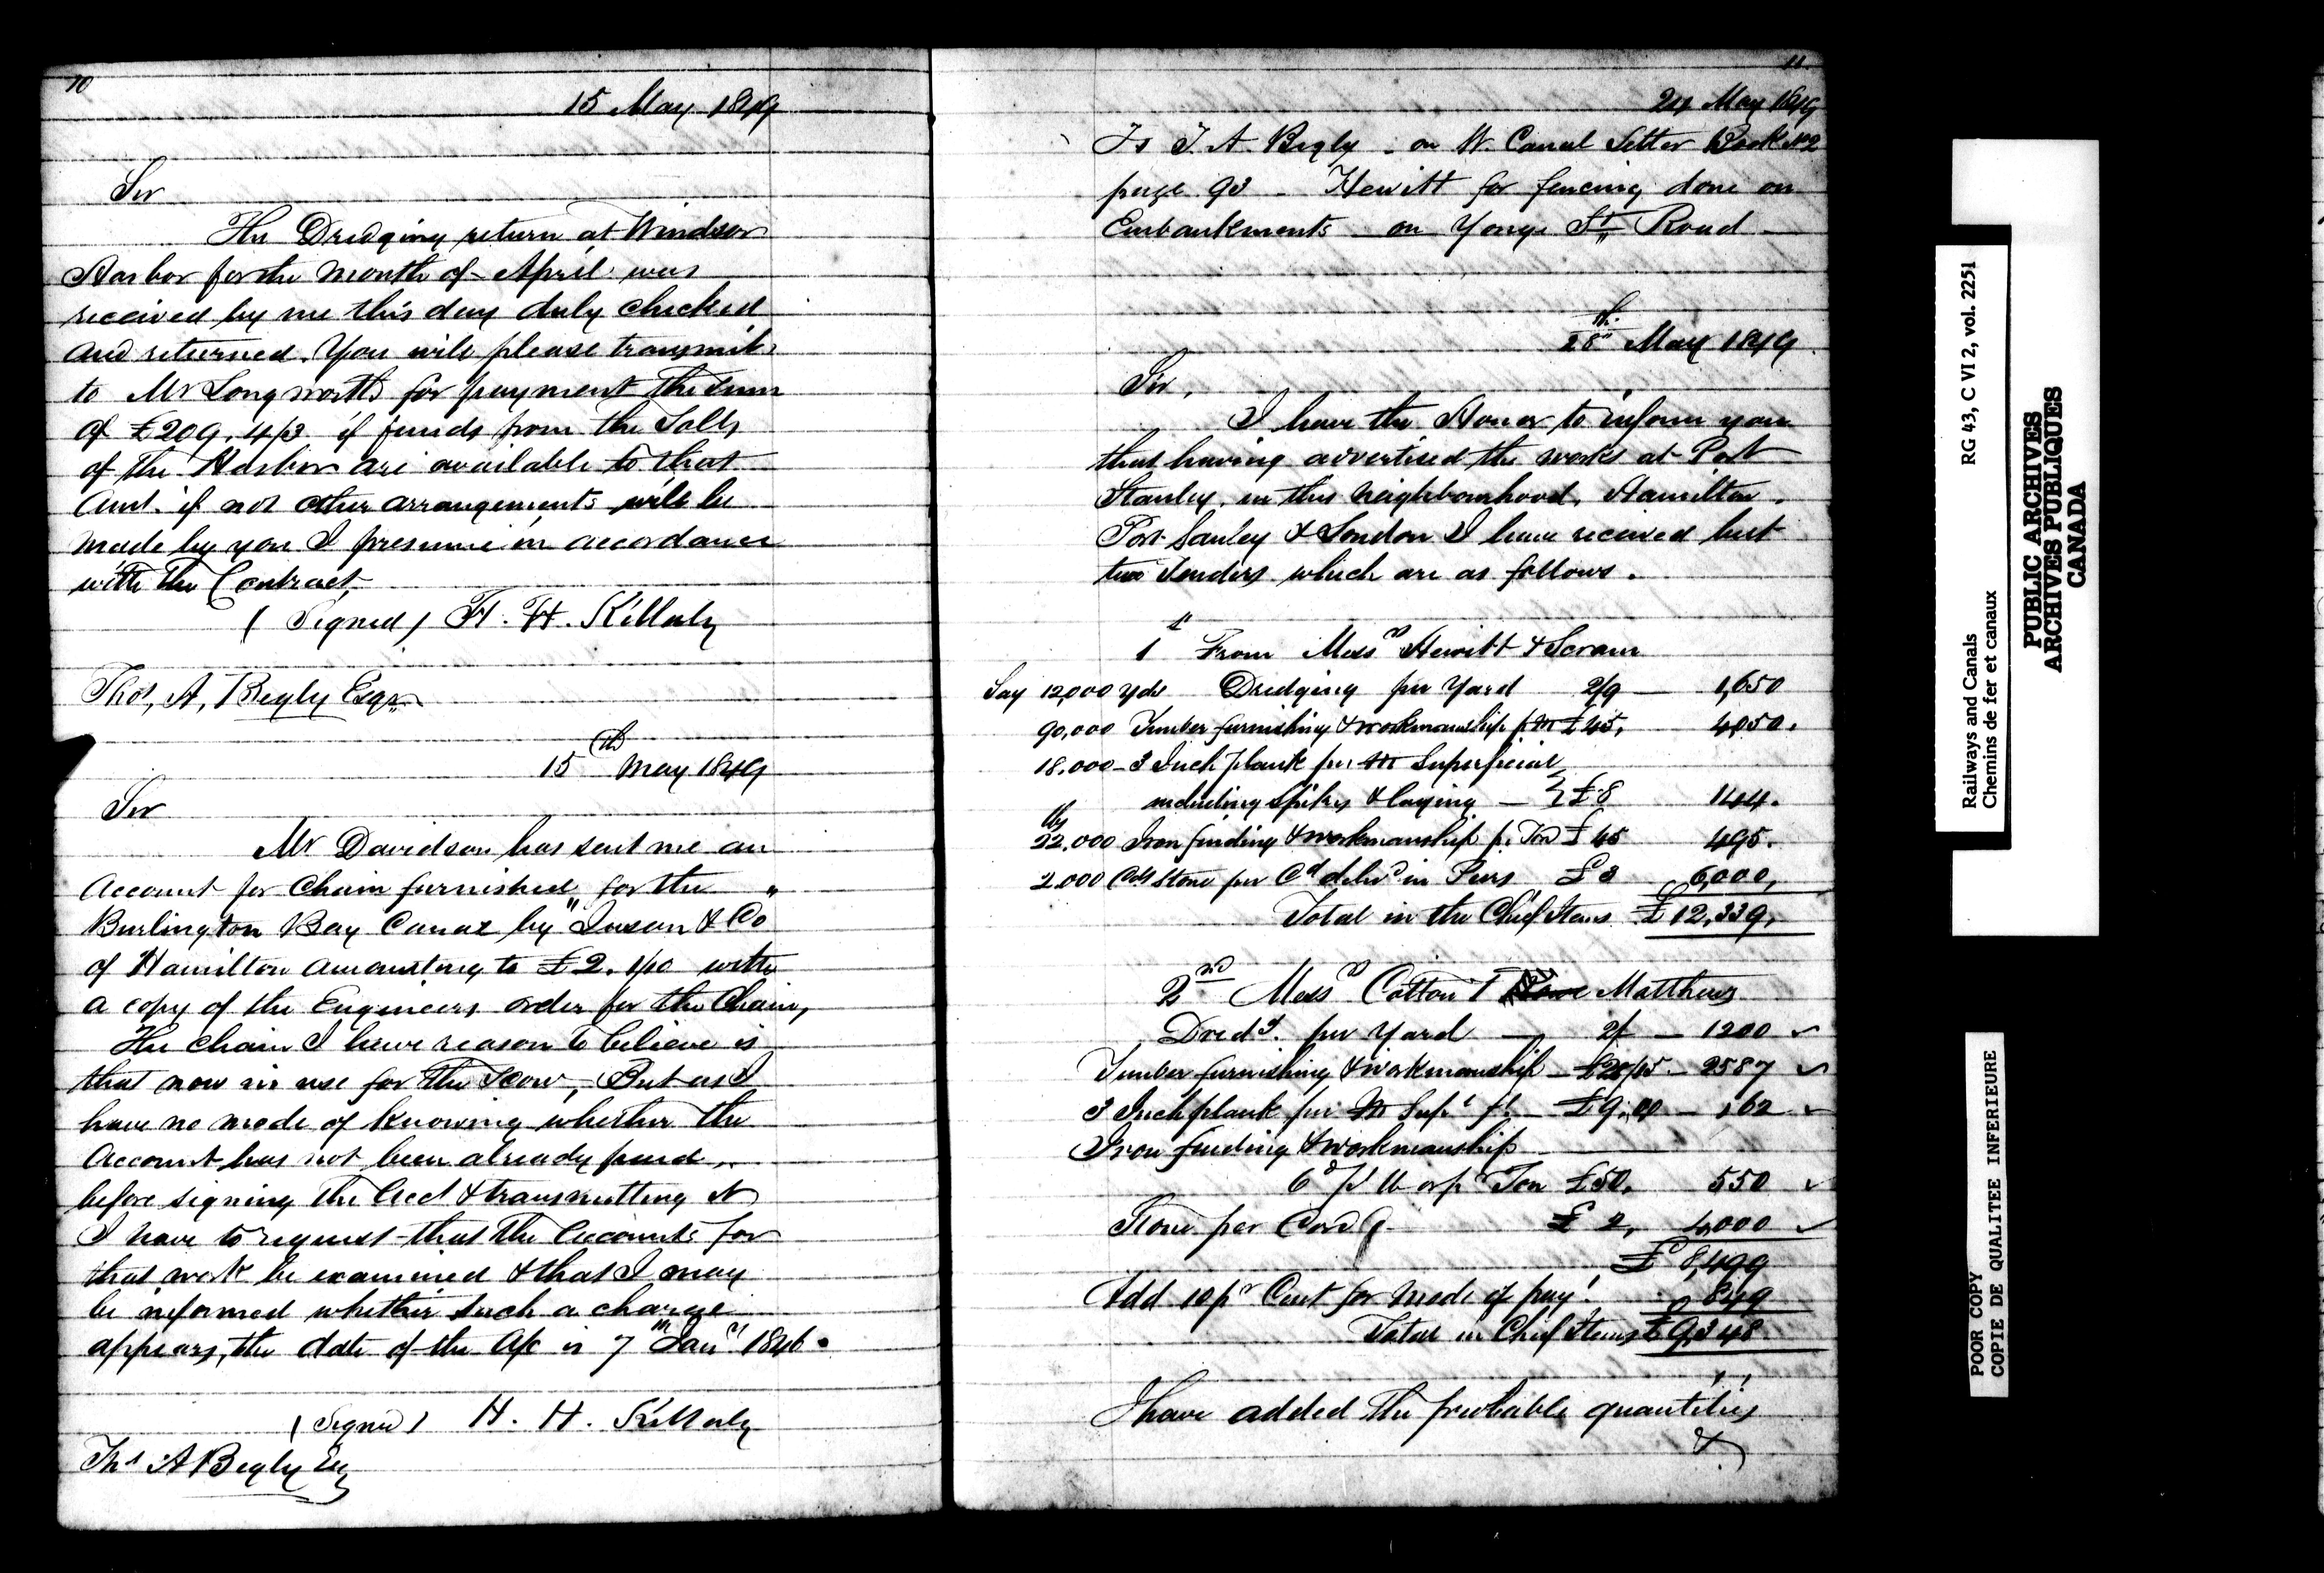 10
15 May 1849
Sir
The Dredging return at Windsor
Harbor for the month of April was
received by me this day duly checked
and returned. You will please transmit
to Mr Longworth for payment the sum
of £209. 4/3 if funds from the Tolls
of the Harbor are available to that
Amt. if not other arrangements will be
made by you I presume in accordance
with the Contract,
(Signed) H. H. Killaly
Thos, A, Begly Esqr
15th May 1849
Sir
Mr Davidson has sent me an
Account for Chain furnished for the "
Burlington Bay Canal by "Juson & Co
of Hamilton amounting to £2. 1/10 with
a copy of the Engineers order for the Chain,
The Chain I have reason to believe is
that now in use for the Scow, But as I
have no mode of knowing whether the
Account has not been already paid,
before signing the acct & transmitting it
I have to request that the accounts for
that work be examined & that I may
be informed whether such a charge
appears, the date of the A/c is 7th Jany 1846.
(Signed) H. H. Killaly
Ths A Begly Esq
11.
24 May 1849
To T. A. Begly - on W. Canal Letter Book No 2
page 93 - Hewitt for fencing done on
Embankments on Yonge St Road -
28th May 1849
Sir,
I have the Honor to inform you
that having advertised the works at Port
Stanley, in this neighbourhood, Hamilton,
Port Sanley & London I have received but
two Tenders which are as follows.
1st From Messrs Hewitt & Scram
Say 12,000 yds Dredging per Yard 2/9 — 1,650
90,000 Timber furnishing & workmanship p M £45, 4,050.
18.000 - 3 Inch plank per M Superficial
including spikes & laying — } £8 144.
lbs
22.000 Iron finding & workmanship p. Ton £45 495.
2.000 Cds Stone per Cd delivd in Piers £3 6,000,
Total in the Chief Items £12,339,
2nd Messrs Cotton & Matthews
Dredg. per Yard — 2/ — 1200
Timber furnishing & workmanship — £28/15 - 2587
3 Inch plank per M Supl ft — £9. 00 — 162
Iron finding & workmanship
6d p lb or pr Ton £50, 550
Stone per Cord £2, 4,000
£8,499
Add 10 pr Cent for mode of payt. 849
Total in Chief Items £9348
I have added the probable quantities
&
RG 43, C VI 2, vol. 2251
Railways and Canals
Chemins de fer et canaux
PUBLIC ARCHIVES
ARCHIVES PUBLIQUES
CANADA
POOR COPY
COPIE DE QUALITEE INFERIEURE